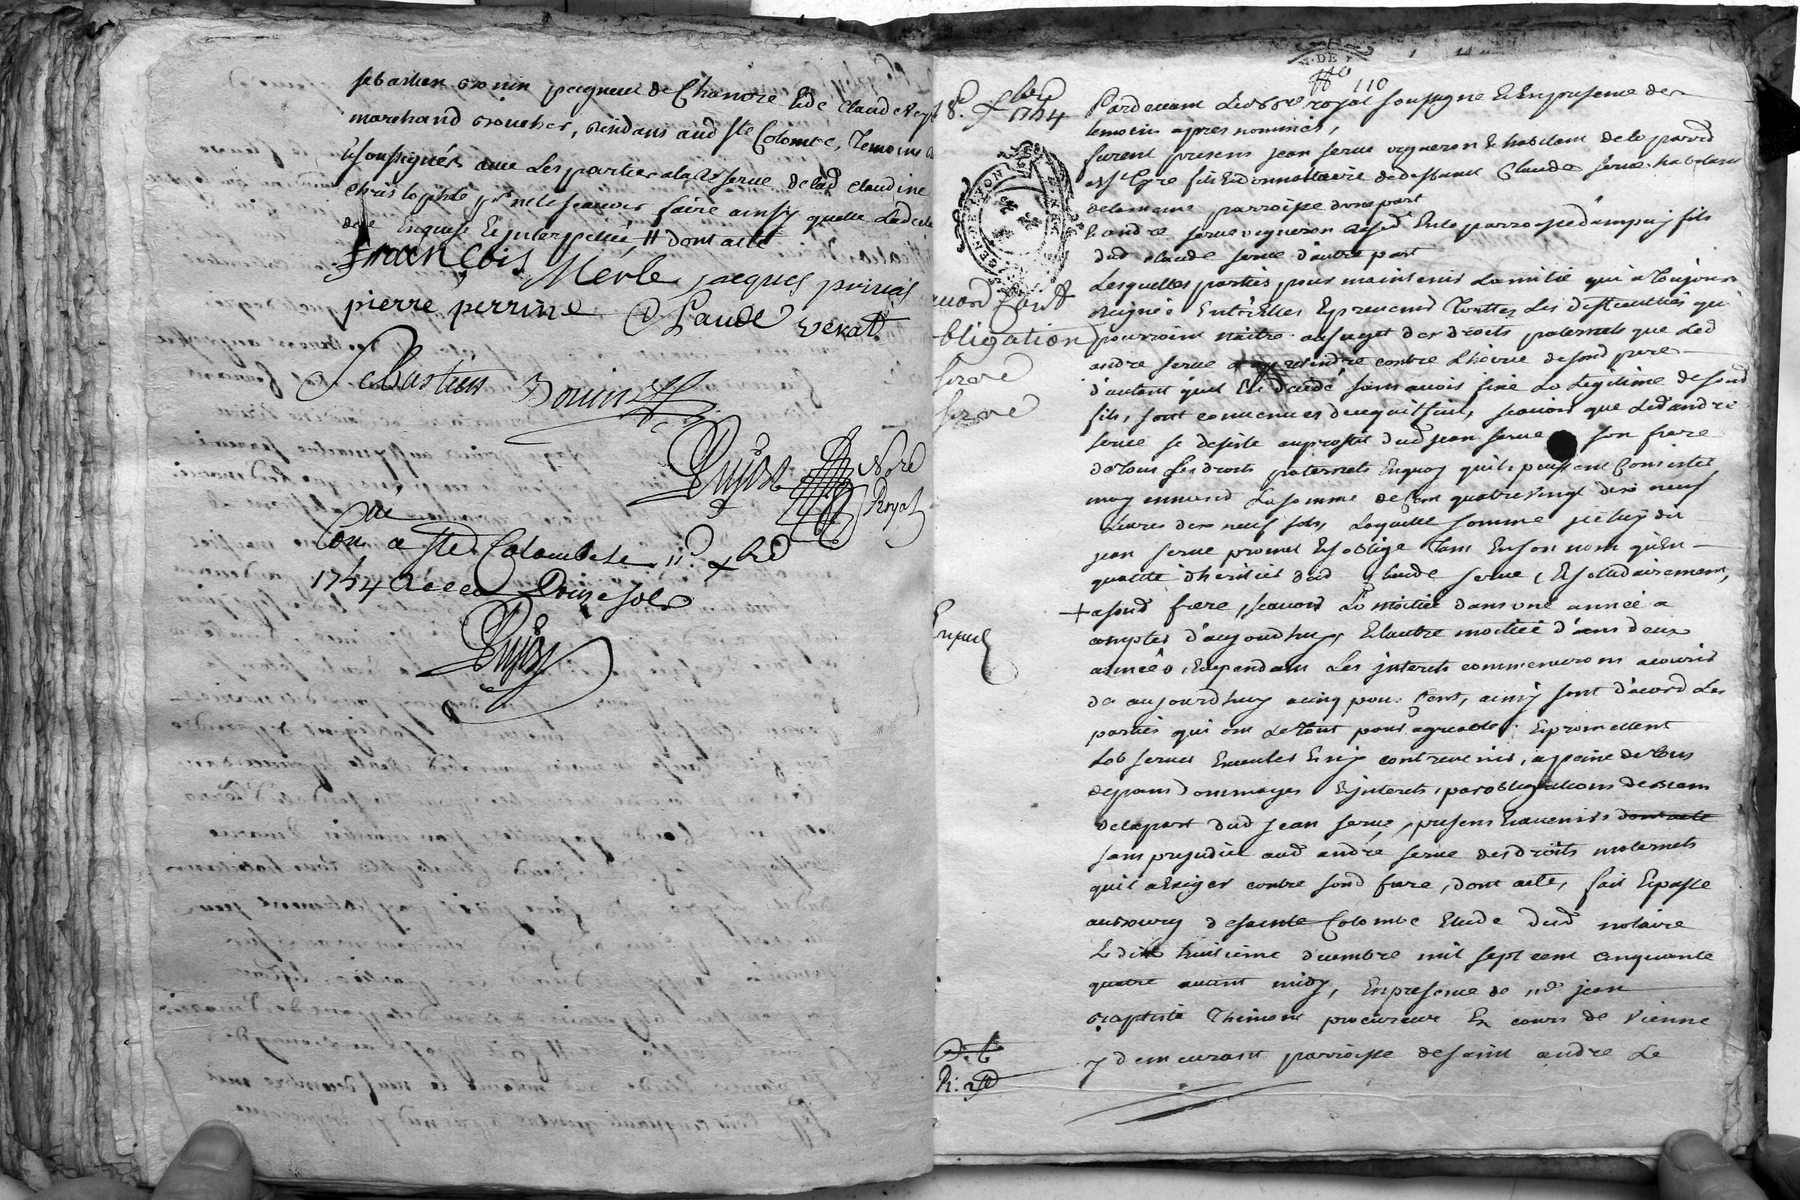 sebastien bonin peigneur de Chanvre Et de Claude
marchand boucher, residans aud Ste Colombe, Temoins
Et soussignés avec Les parties a la reserve de lad Claudine
Christophle pr ne le scavoir faire ainsy quelle La declaré
de ce Enquise Et interpellée // dont acte
françois Merle jacques
pierre perrine Claude verat
Sebastien Bonin
Dujost Nore
Royal
Con a Ste Colombe le 11e xbre
1754 Reçu Douze sols
Dujost
110
8e xbre
1754
GEN DE LYON
obligation
serve
serve
Pardevant Le Nore royal soussigné Et En presence des
temoins apres nommés,
furent presens jean serve vigneron Et habitant de la parr
de St Cyre fils Et donnataire de deffunt Claude serve habitant
de la meme parroisse d'une part
Et andre serve vigneron En la parroisse d'ampuy fils
dud claude serve d'autre part
Lesquelles parties pour maintenir L'amitié qui a toujours
reigné Entr'elles Et prevenir Toutes Les difficultés qui
pourroint naitre au sujet des droits paternels que Led
andre serve pretendre contre L'hoirie de sond pere
d'autant qu'il Est decedé sans avoir fixé La Legitime de sond
fils, sont convenues de ce qui suit, scavoir que Led andré
serve se desiste au profit dud jean serve son frere
de tous Les droits paternels En quoy qu'ils peussent Consister
moyennand La somme de Cent quatre vingt dix neuf
Livres dix neuf sols, Laquelle somme icelluy du
jean serve promet Et s'oblige Tant En son nom qu'En
qualité d'heritier dud Claude serve, Et solidairement,
+ a sond frere, scavoir La moitié dans une année a
compter d'aujourd'huy, Et l'autre moitié d'ans deux
années, Cependant Les interets commenceront a courir
de aujourd'huy a cinq pour Cent, ainsy sont d'acord Les
parties qui ont Le Tout pour agreable Et promettent
L'observer Et n'y contrevenir, a peine de Tous
depans dommages Et interets, par obligations de biens
de la part dud jean serve, presens Et avenirs dont acte
sans prejudice aud andré serve des droits maternels
qu'il a Exiger contre sond frere, dont acte, fait Et passé
au bourg de sainte Colombe Etude dud notaire
Le dix huitieme decembre mil sept cent cinquante
quatre avant midy, En presence de me jean
Baptiste Thimont procureur Es cours de Vienne
y demeurant parroisse de saint andré Le